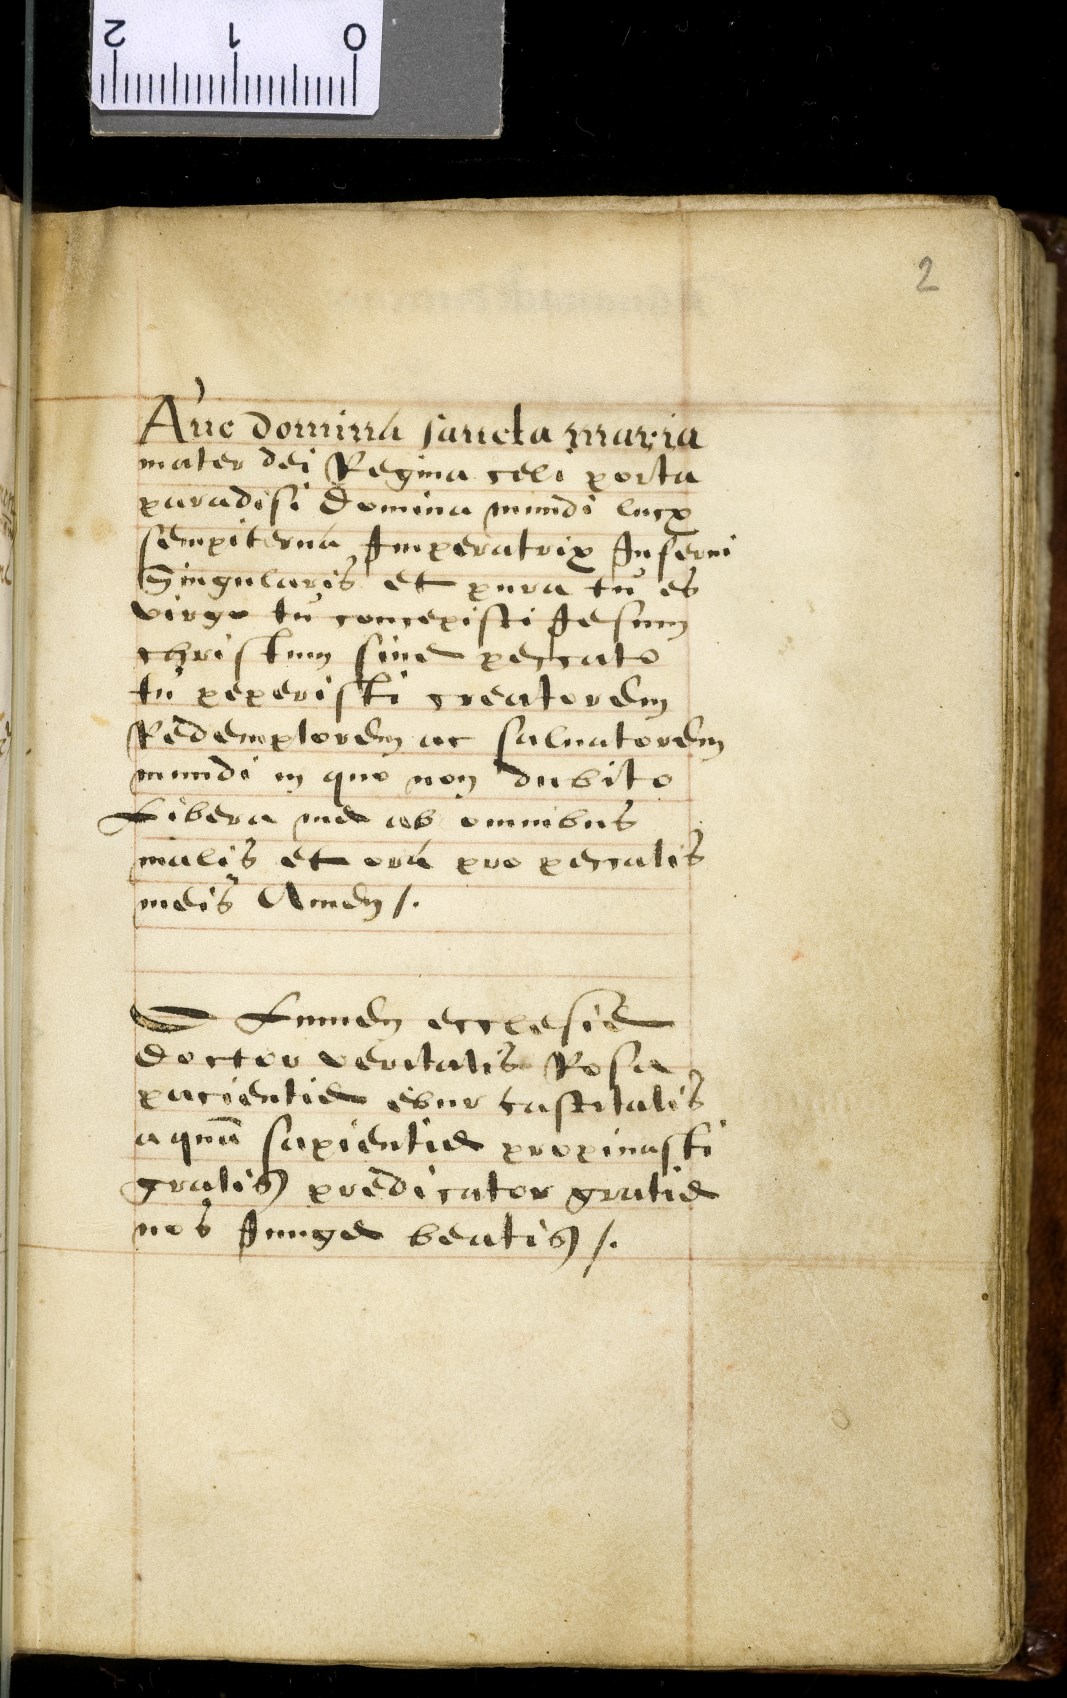 2 1 0
2
Aue domina sancta maria
mater dei Regina celi porta
paradisi domina mundi lux
sempiterna Imperatrix Inferni
Singularis et pura tu es
virgo tu concepisti Jesum
christum sine peccato
tu peperisti creatorem
Redemptorem ac saluatorem
mundi in quo non dubito
Libera me ab omnibus
malis et ora pro peccatis
meis Amen /.
O Lumen ecclesie
doctor veritatis Rosa
paciencie ebur castitatis
aquam sapientie propinasti
gratis predicator gratie
nos Junge beatis /.